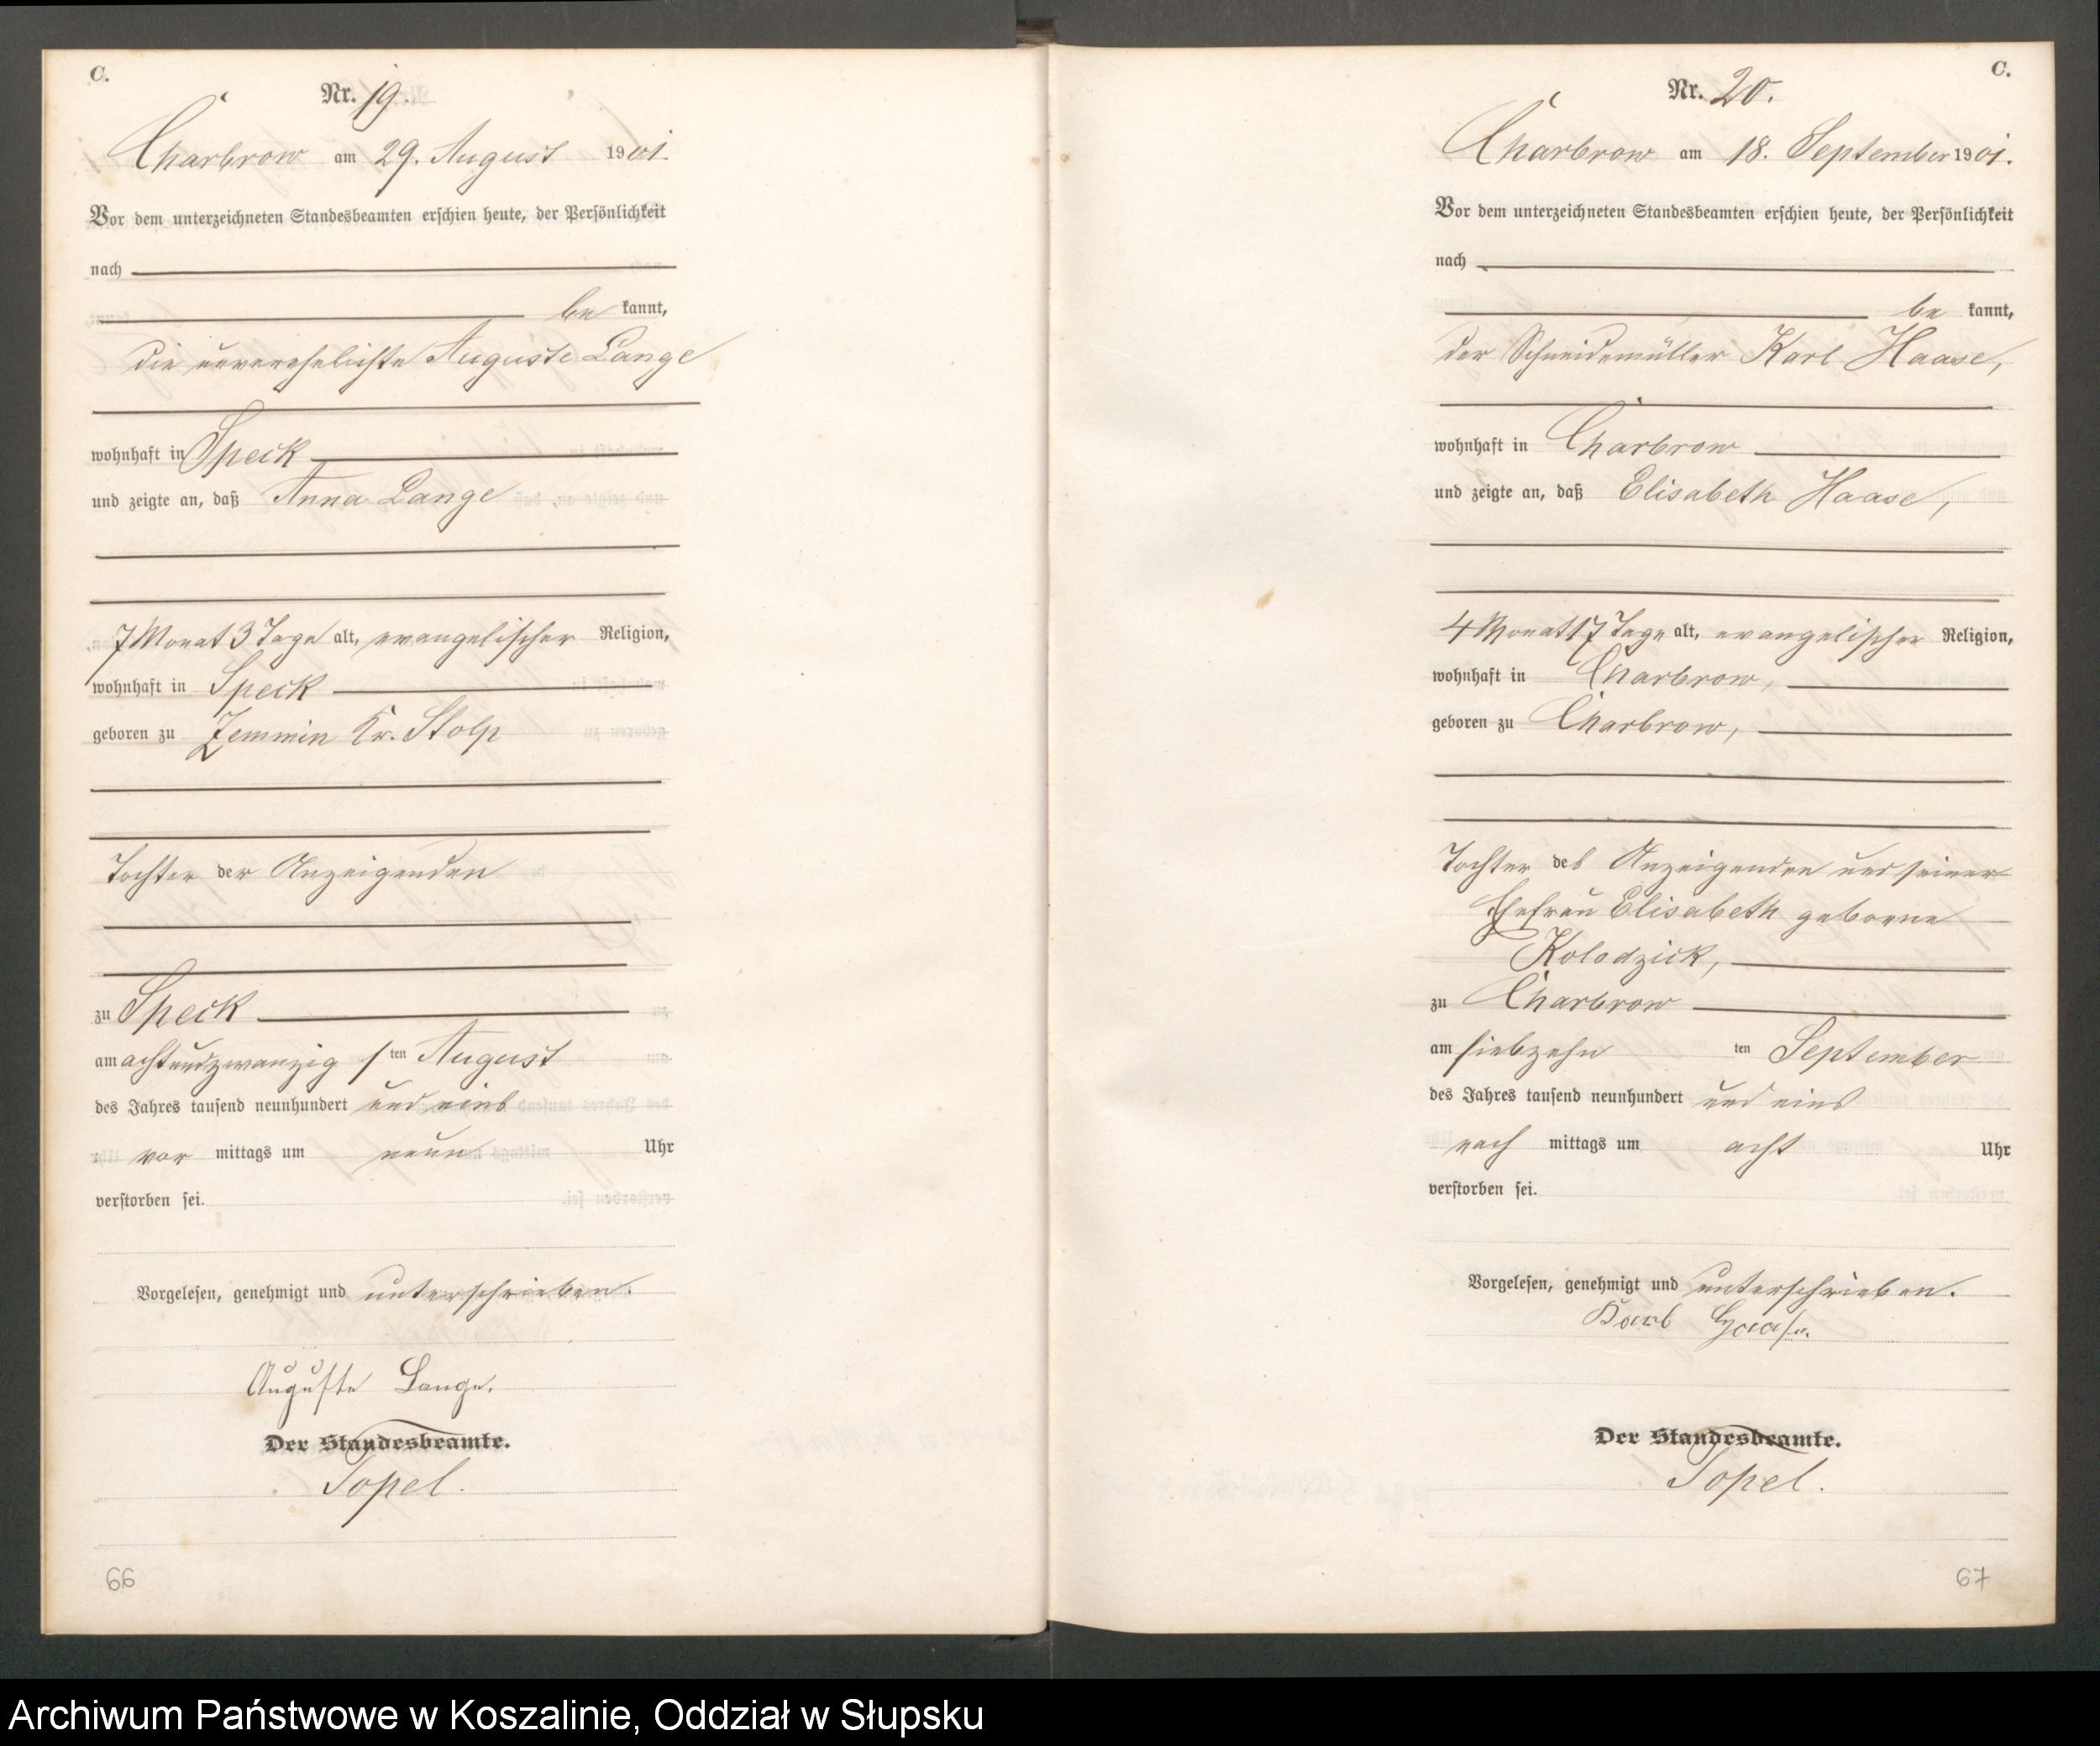 C.
Nr. 19.
Charbrow am 29. August 1901.
Vor dem unterzeichneten Standesbeamten erschien heute, der Persönlichkeit
nach
be kannt,
die unverehelichte Auguste Lange
wohnhaft in Speck
und zeigte an, daß Anna Lange
7 Monat 3 Tage alt, evangelischer Religion,
wohnhaft in Speck
geboren zu Zemmin Kr. Stolp
Tochter der Anzeigenden
zu Speck
am achtundzwanzig ten August
des Jahres tausend neunhundert und eins
vor mittags um neun Uhr
verstorben sei.
Vorgelesen, genehmigt und unterschrieben.
Auguste Lange.
Der Standesbeamte.
Topel.
66
C.
Nr. 20.
Charbrow am 18. September 1901.
Vor dem unterzeichneten Standesbeamten erschien heute, der Persönlichkeit
nach
be kannt,
der Schneidemüller Karl Haase,
wohnhaft in Charbrow
und zeigte an, daß Elisabeth Haase,
4 Monat 17 Tage alt, evangelischer Religion,
wohnhaft in Charbrow,
geboren zu Charbrow,
Tochter des Anzeigenden und seiner
Ehefrau Elisabeth geborne
Kolodzick,
zu Charbrow
am siebzehn ten September
des Jahres tausend neunhundert und eins
nach mittags um acht Uhr
verstorben sei.
Vorgelesen, genehmigt und unterschrieben.
Karl Haase.
Der Standesbeamte.
Topel.
67
Archiwum Państwowe w Koszalinie, Oddział w Słupsku